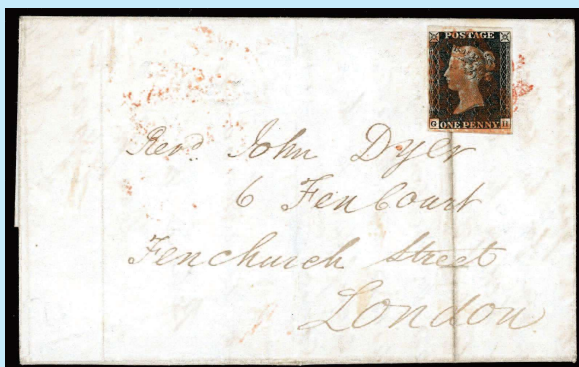 POSTAGE
G ONE PENNY H
Revd. John Dyer
6 Fen Court
Fenchurch Street
London